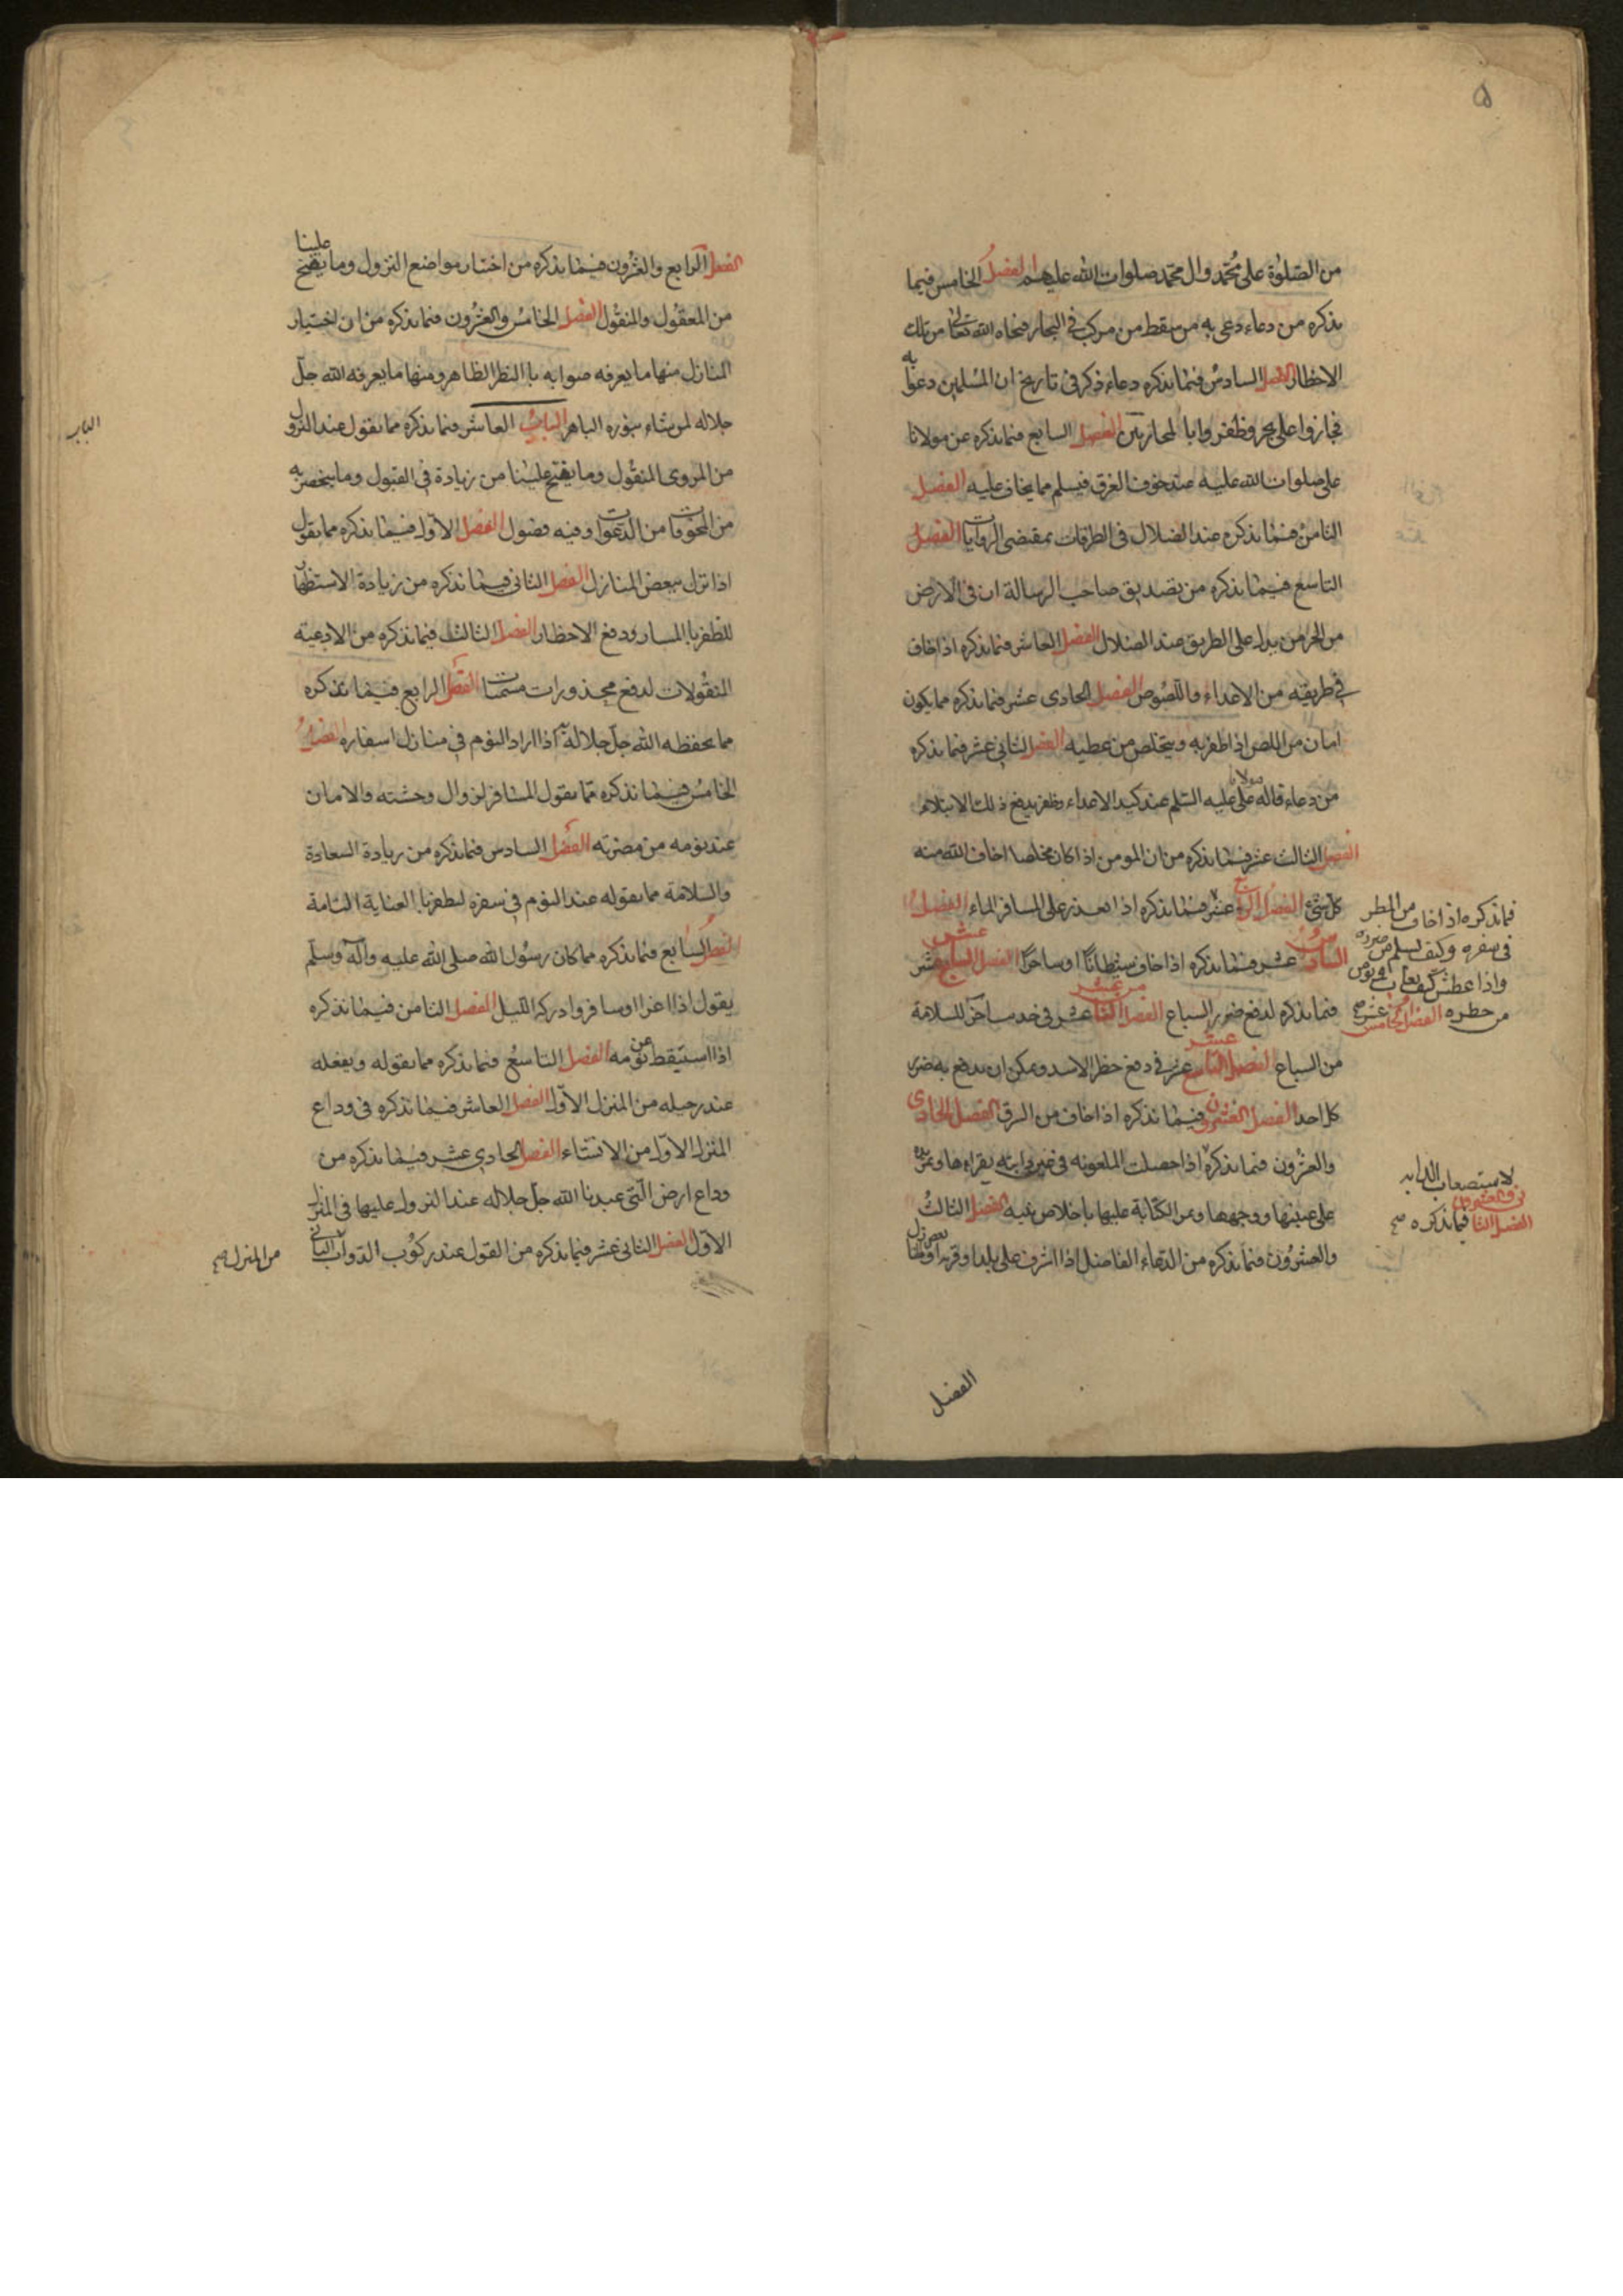 ٥
من الصلوة على محمد وال محمد صلوات الله عليهم الفصل الخامس فيما
نذكره من دعاء دعى به من سقط من مركب فى البحار فنجاه الله تعالى من تلك
الاخطار الفصل السادس فيما نذكره دعاء ذكر فى تاريخ ان المسلمين دعوا به
فجازوا على بحر وظفروا بالمحاربين الفصل السابع فيما نذكره عن مولانا
على صلوات الله عليه عند خوف الغرق فيسلم مما يخاف عليه الفصل
الثامن فيما نذكره عند الضلال فى الطرقات بمقتضى الروايات الفصل
التاسع فيما نذكره من تصديق صاحب الرسالة ان فى الارض
من الجن من يدل على الطريق عند الضلال الفصل العاشر فيما نذكره اذا خاف
فى طريقه من الاعداء واللصوص الفصل الحادى عشر فيما نذكره مما يكون
امان من اللص اذا ظفر به ويتخلص من عطبه الفصل الثانى عشر فيما نذكره
من دعاء قاله مولانا على عليه السلم عند كيد الاعداء وظفر بدفع ذلك الابتلاء
الفصل الثالث عشر فيما نذكره من ان المومن اذا كان مخلصا اخاف الله منه
كل شئ الفصل الرابع عشر فيما نذكره اذا تعذر على المسافر الماء الفصل
السادس عشر فيما نذكره اذا خاف شيطانا او ساحرا الفصل السابع عشر
فيما نذكره لدفع ضرر السباع الفصل الثامن عشر فى حديث اخر للسلامة
من السباع الفصل التاسع عشر فى دفع خطر الاسد ويمكن ان يدفع به ضرر
كل احد الفصل العشرون فيما نذكره اذا خاف من السرق الفصل الحادى
والعشرون فيما نذكره اذا حصلت الملعونه فى عين دابته يقراها ويمر يده
على عينها ووجهها ويمر الكتابة عليها باخلاص نيه الفصل الثالث
والعشرون فيما نذكره من الدعاء الفاضل اذا اشرف على بلد او قرية او بعض
فيما نذكره اذا خاف من المطر
فى سفره وكيف يسلم من ضرره
واذا عطش كيف يغاث ويومن
من خطره الفصل الخامس عشر صح
لاستصعاب الدابه
الفصل الثانى والعشرون فيما نذكره صح
الفصل
الفصل الرابع والعشرون فيما نذكره من اختيار مواضع النزول وما يفتح علينا
من المعقول والمنقول الفصل الخامس والعشرون فيما نذكره من ان اختيار
المنازل منها ما يعرفه صوابه بالنظر الظاهر ومنها ما يعرفه الله جل
جلاله لمن يشاء بنوره الباهر الباب العاشر فيما نذكره مما نقول عند النزول
من المروى المنقول وما يفتح علينا من زيادة فى القبول وما يتحصن به
من المخوفات من الدعوات وفيه فصول الفصل الاول فيما نذكره مما يقول
اذا نزل ببعض المنازل الفصل الثانى فيما نذكره من زيادة الاستظهار
للظفر بالمسار ودفع الاخطار الفصل الثالث فيما نذكره من الادعية
المنقولات لدفع محذورات مسميات الفصل الرابع فيما نذكره
مما يحفظه الله جل جلاله به اذا اراد النوم فى منازل اسفاره الفصل
الخامس فيما نذكره مما يقول المسافر لزوال وحشته والامان
عند نومه من مضرته الفصل السادس فيما نذكره من زيادة السعادة
والسلامة مما يقوله عند النوم فى سفره ليظفر بالعناية التامة
الفصل السابع فيما نذكره مما كان رسول الله صلى الله عليه وآله وسلم
يقول اذا غزا او سافر وادركه الليل الفصل الثامن فيما نذكره
اذا استيقظ من نومه الفصل التاسع فيما نذكره مما يقوله ويفعله
عند رحيله من المنزل الاول الفصل العاشر فيما نذكره فى وداع
المنزل الاول من الانشاء الفصل الحادى عشر فيما نذكره من
وداع ارض التى عبدنا الله جل جلاله عند النزول عليها فى المنزل
الاول الفصل الثانى عشر فيما نذكره من القول عند ركوب الدواب الثانى
من المنزل صح
الباب